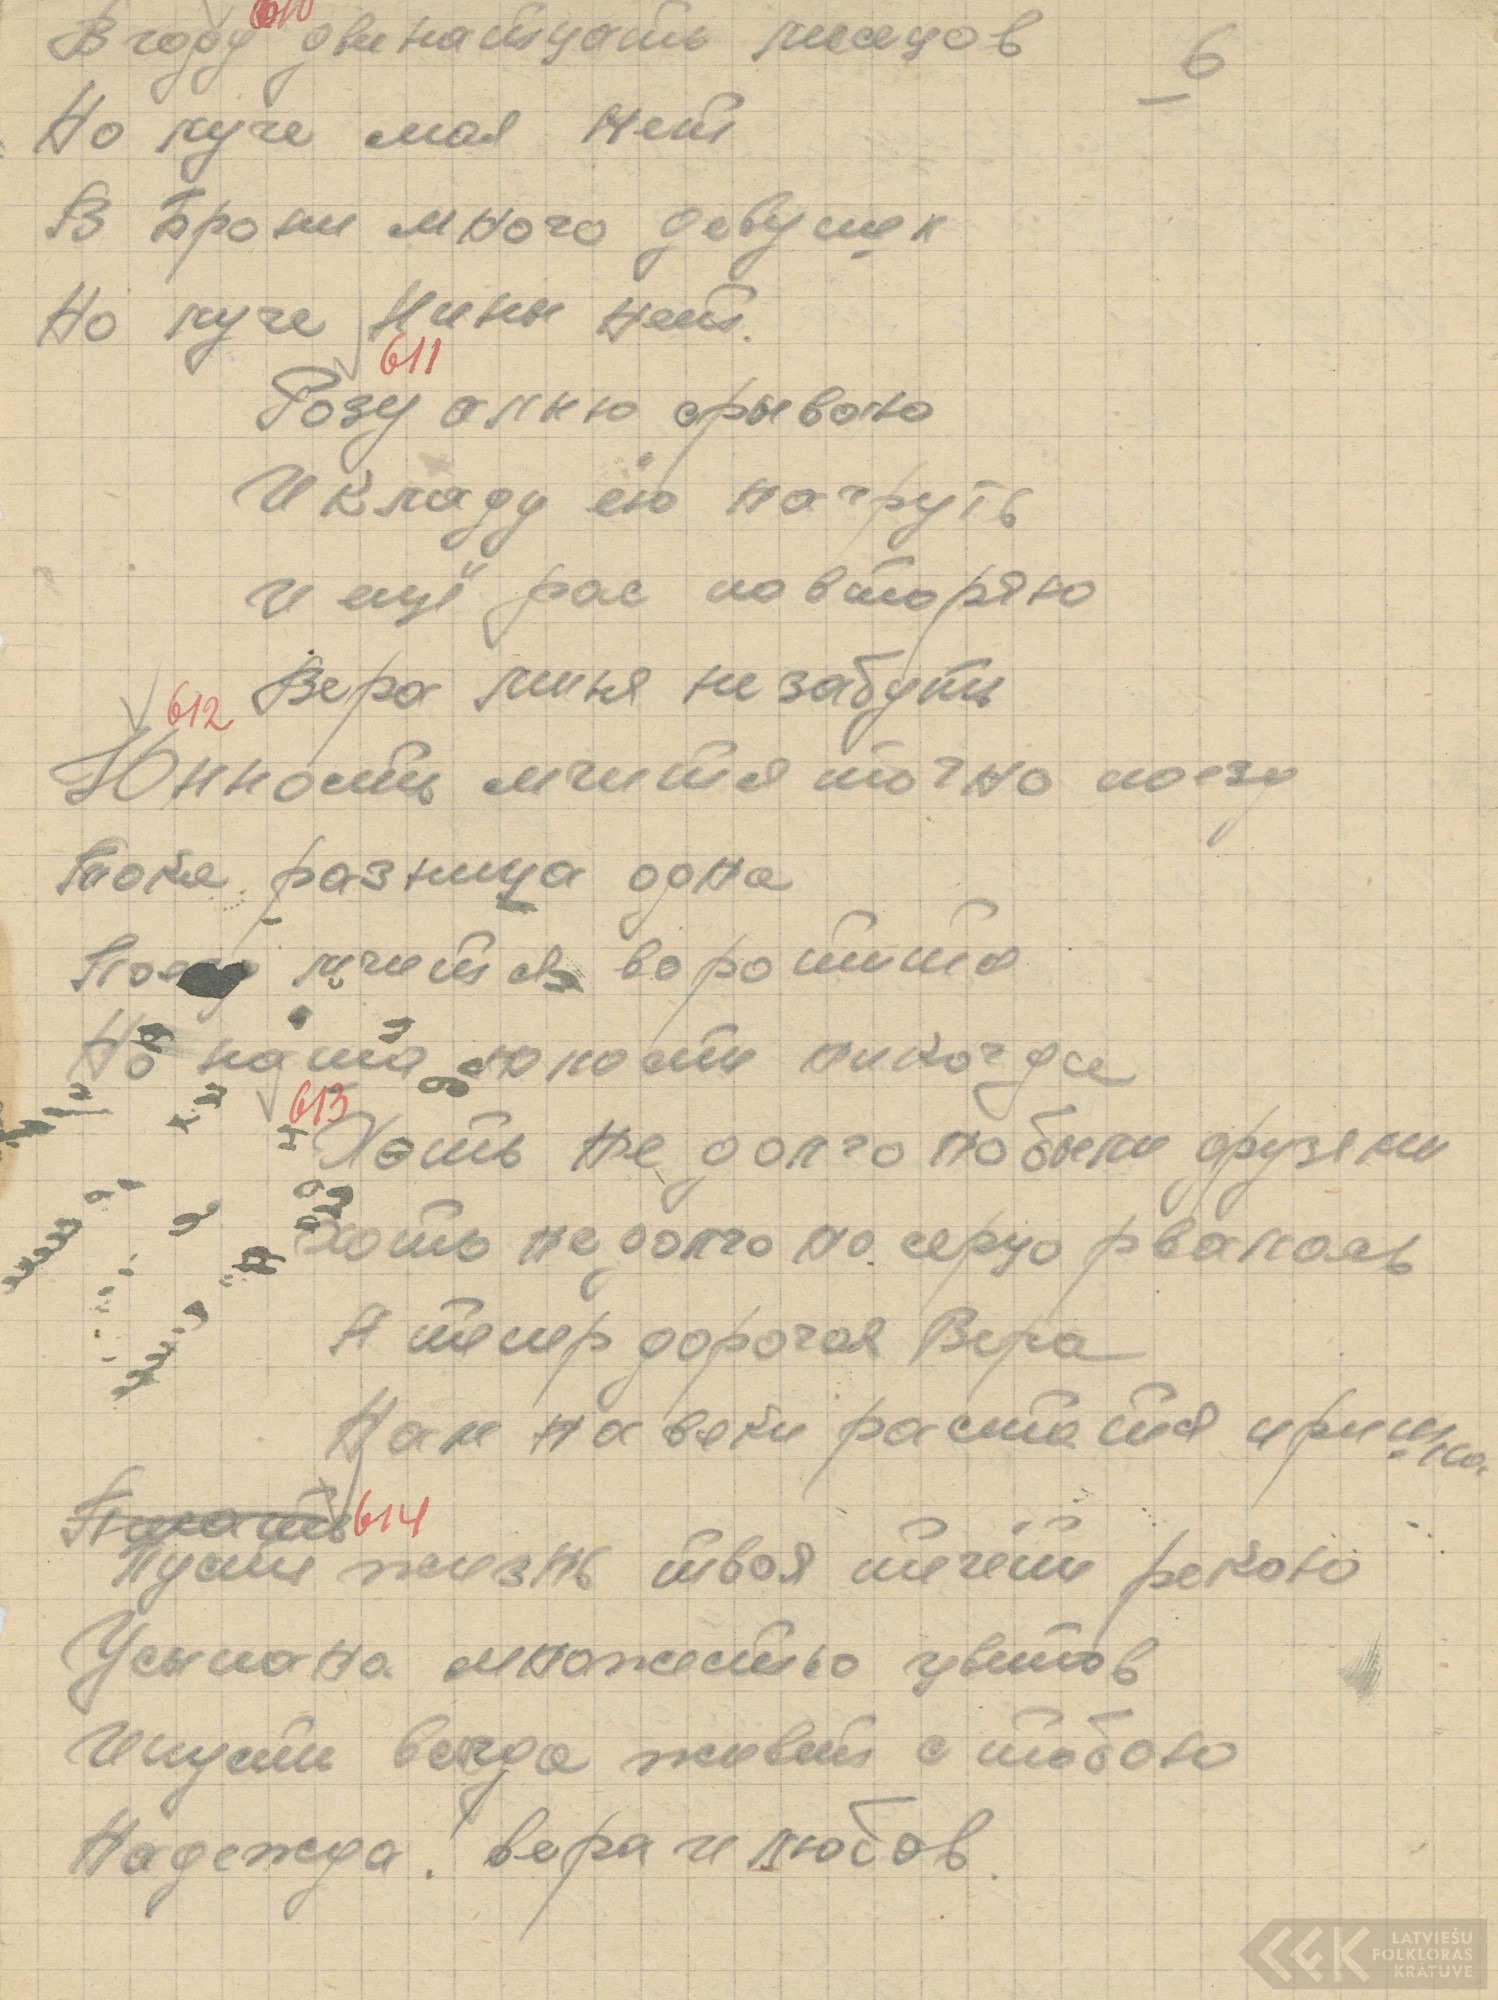 610
В году двинатцать месецов
6
Но луче мая нет
В Брони много девушек
Но луче Нины нет.
611
Розу алню срываю
И кладу ею нагруть
и ещё рас повторяю
Вера миня незабуть
612
Юнность мчится точно поезд
Токе разница одна
Поезд мчится воротится
Но наша юность никогда
613
Хоть не долго побыли друзями
Хоть недолго но серцо рвалось
А тепер дорогая Вера
Нам навеки растатся пришло.
614
Пусть жизнь твоя течёт рекою
Усыпана множество цвитов
Ипусть всегда живёт с тобою
Надежда. вера и любов.
LATVIEŠU
FOLKLORAS
KRĀTUVE